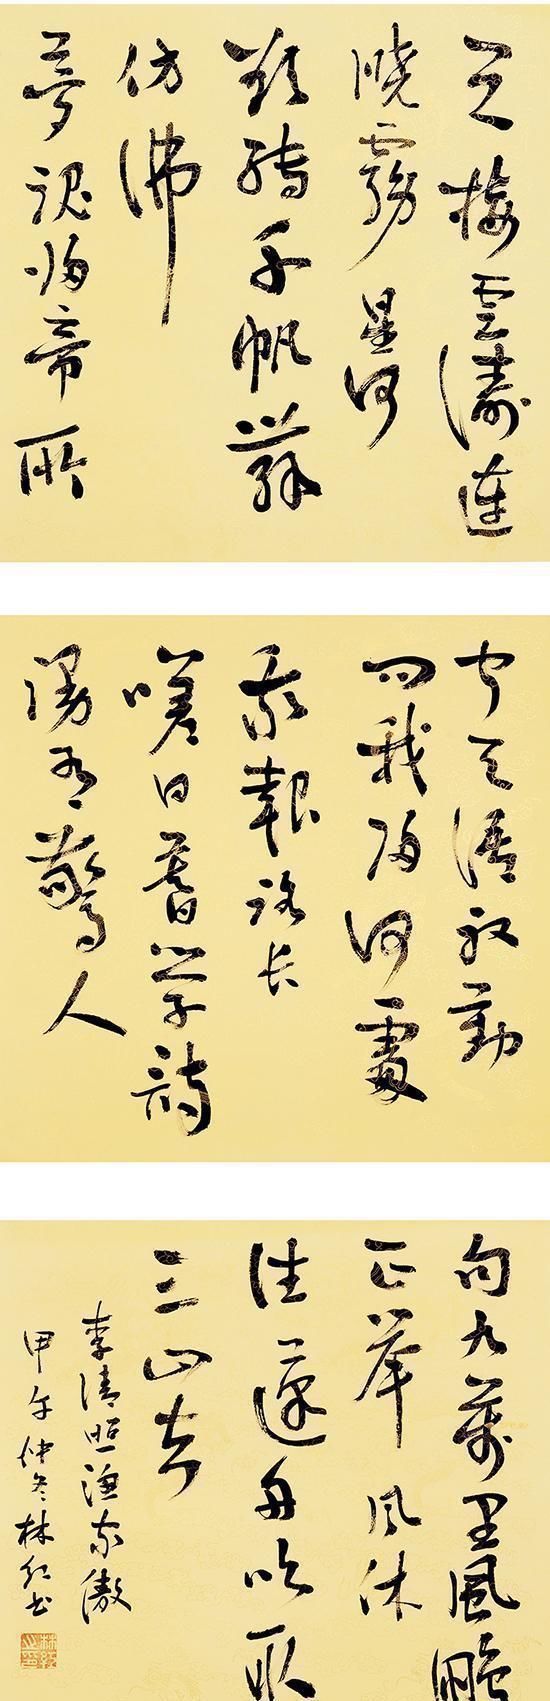 天接雲濤連
曉霧星河
欲轉千帆舞
仿佛
夢魂歸帝所
聞天語殷勤
問我歸何處
我報路長
嗟日暮學詩
漫有驚人
句九萬里風鵬
正舉風休
住蓬舟吹取
三山去
李清照漁家傲
甲午仲冬林紅書
林紅之印